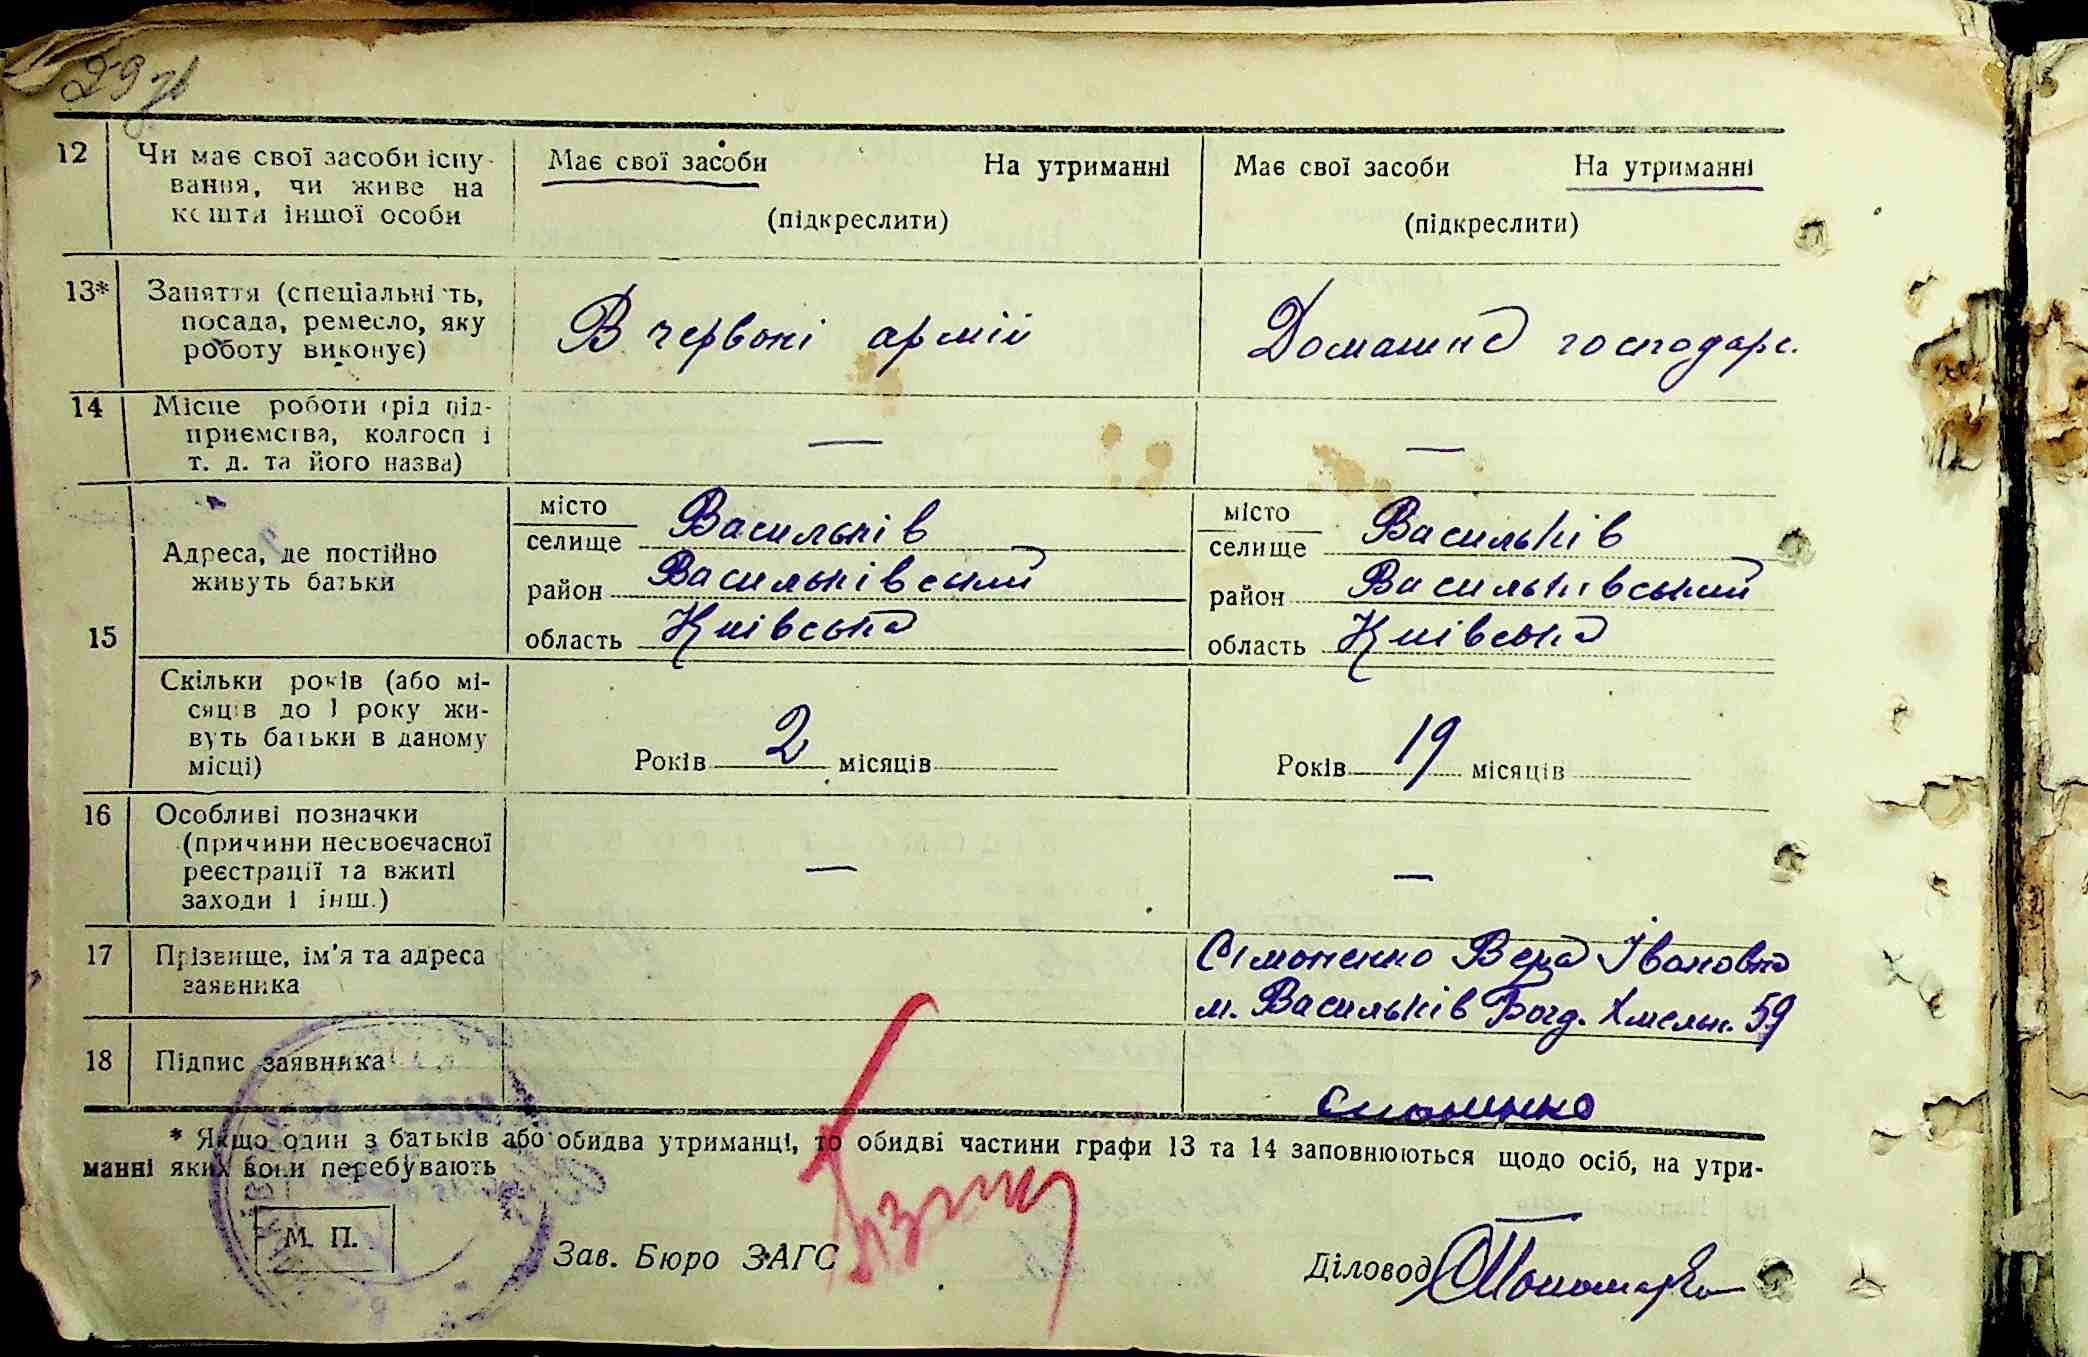 29 зв
12 Чи має свої засоби існу- Має свої засоби На утриманні Має свої засоби На утриманні
вання, чи живе на
кошти іншої особи (підкреслити) (підкреслити)
13* Заняття (спеціальність,
посада, ремесло, яку В червоні армій Домашнє господарс.
роботу виконує)
14 Місце роботи (рід під-
приємства, колгосп і — —
т. д. та його назва)
15 Адреса, де постійно
живуть батьки
місто
селище Васильків
район Васильківський
область Київська
місто
селище Васильків
район Васильківський
область Київська
Скільки років (або мі-
сяців до 1 року жи-
вуть батьки в даному Років 2 місяців Років 19 місяців
місці)
16 Особливі позначки
(причини несвоєчасної
реєстрації та вжиті — —
заходи і інш.)
17 Прізвище, ім'я та адреса Сімоненко Вера Івановна
заявника м. Васильків Богд. Хмельн. 59
18 Підпис заявника
* Якщо один з батьків або обидва утриманці, то обидві частини графи 13 та 14 заповнюються щодо осіб, на утри-
манні яких вони перебувають
М. П.
Зав. Бюро ЗАГС Діловод